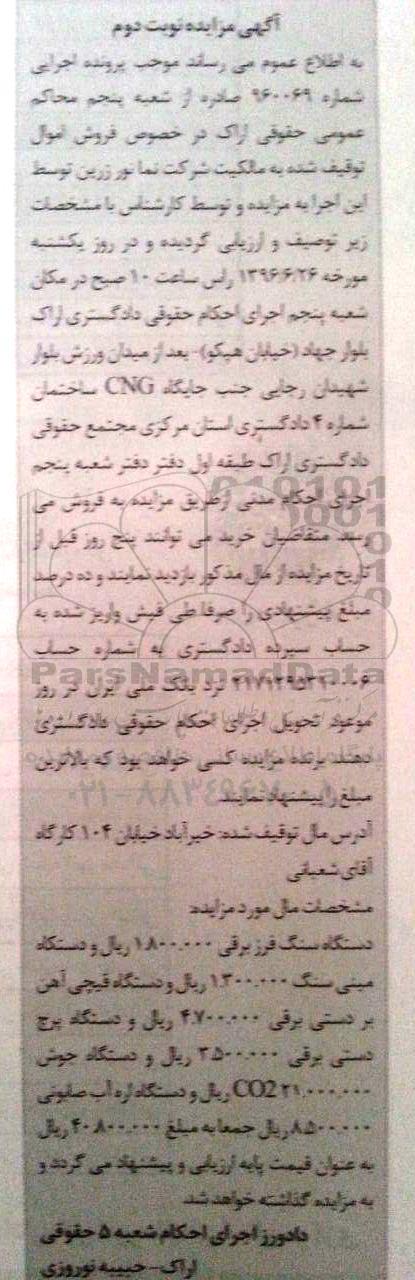 آگهی مزایده نوبت دوم
به اطلاع عموم می رساند موجب پرونده اجرایی
شماره ۹۶۰۰۶۹ صادره از شعبه پنجم محاکم
عمومی حقوقی اراک در خصوص فروش اموال
توقیف شده به مالکیت شرکت نما نور زرین توسط
این اجرا به مزایده و توسط کارشناس با مشخصات
زیر توصیف و ارزیابی گردیده و در روز یکشنبه
مورخه ۱۳۹۶/۶/۲۶ راس ساعت ۱۰ صبح در مکان
شعبه پنجم اجرای احکام حقوقی دادگستری اراک
بلوار جهاد (خیابان هپکو)- بعد از میدان ورزش بلوار
شهیدان رجایی جنب جایگاه CNG ساختمان
شماره ۴ دادگستری استان مرکزی مجتمع حقوقی
دادگستری اراک طبقه اول دفتر دفتر شعبه پنجم
اجرای احکام مدنی از طریق مزایده به فروش می
رسد. متقاضیان خرید می توانند پنج روز قبل از
تاریخ مزایده از مال مذکور بازدید نمایند و ده درصد
مبلغ پیشنهادی را صرفا طی فیش واریز شده به
حساب سپرده دادگستری به شماره حساب
نزد بانک ملی ایران در روز
موعود تحویل اجرای احکام حقوقی دادگستری
دهند. برنده مزایده کسی خواهد بود که بالاترین
مبلغ را پیشنهاد نمایند.
آدرس مال توقیف شده: خیرآباد خیابان ۱۰۴ کارگاه
آقای شعبانی
مشخصات مال مورد مزایده:
دستگاه سنگ فرز برقی ۱.۸۰۰.۰۰۰ ریال و دستگاه
مینی سنگ ۱.۳۰۰.۰۰۰ ریال و دستگاه قیچی آهن
بر دستی برقی ۴.۷۰۰.۰۰۰ ریال و دستگاه پرچ
دستی برقی ۳.۵۰۰.۰۰۰ ریال و دستگاه جوش
CO2 ۲۱.۰۰۰.۰۰۰ ریال و دستگاه اره آب صابونی
۸.۵۰۰.۰۰۰ ریال جمعا به مبلغ ۴۰.۸۰۰.۰۰۰ ریال
به عنوان قیمت پایه ارزیابی و پیشنهاد می گردد و
به مزایده گذاشته خواهد شد.
دادورز اجرای احکام شعبه ۵ حقوقی
اراک - حبیبه نوروزی
ParsNamadData